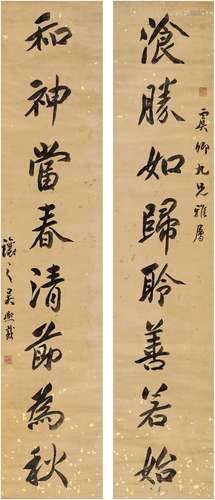 飡勝如歸聆善若始
虞卿九兄雅屬
和神當春清節為秋
讓之吳熙載